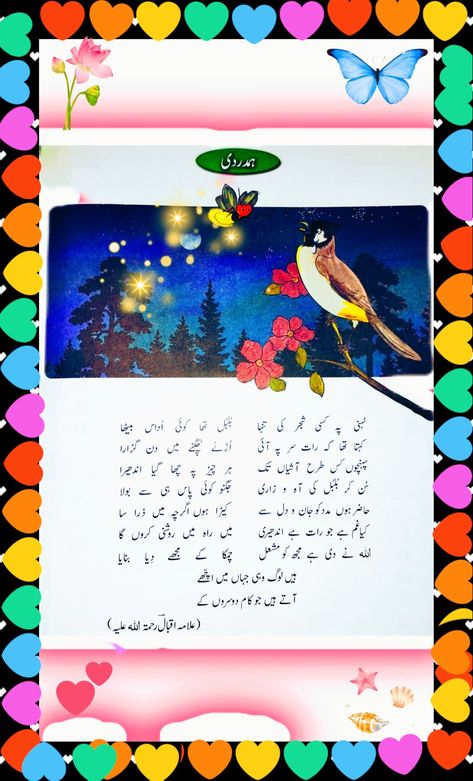 ہمدردی
ٹہنی پہ کسی شجر کی تنہا بلبل تھا کوئی اُداس بیٹھا
کہتا تھا کہ رات سر پہ آئی اُڑنے چگنے میں دن گزارا
پہنچوں کس طرح آشیاں تک ہر چیز پہ چھا گیا اندھیرا
سن کر بلبل کی آہ و زاری جگنو کوئی پاس ہی سے بولا
حاضر ہوں مدد کو جان و دل سے کیڑا ہوں اگرچہ میں ذرا سا
کیا غم ہے جو رات ہے اندھیری میں راہ میں روشنی کروں گا
اللہ نے دی ہے مجھ کو مشعل چمکا کے مجھے دِیا بنایا
ہیں لوگ وہی جہاں میں اچھے
آتے ہیں جو کام دوسروں کے
(علامہ اقبال رحمۃ اللہ علیہ)